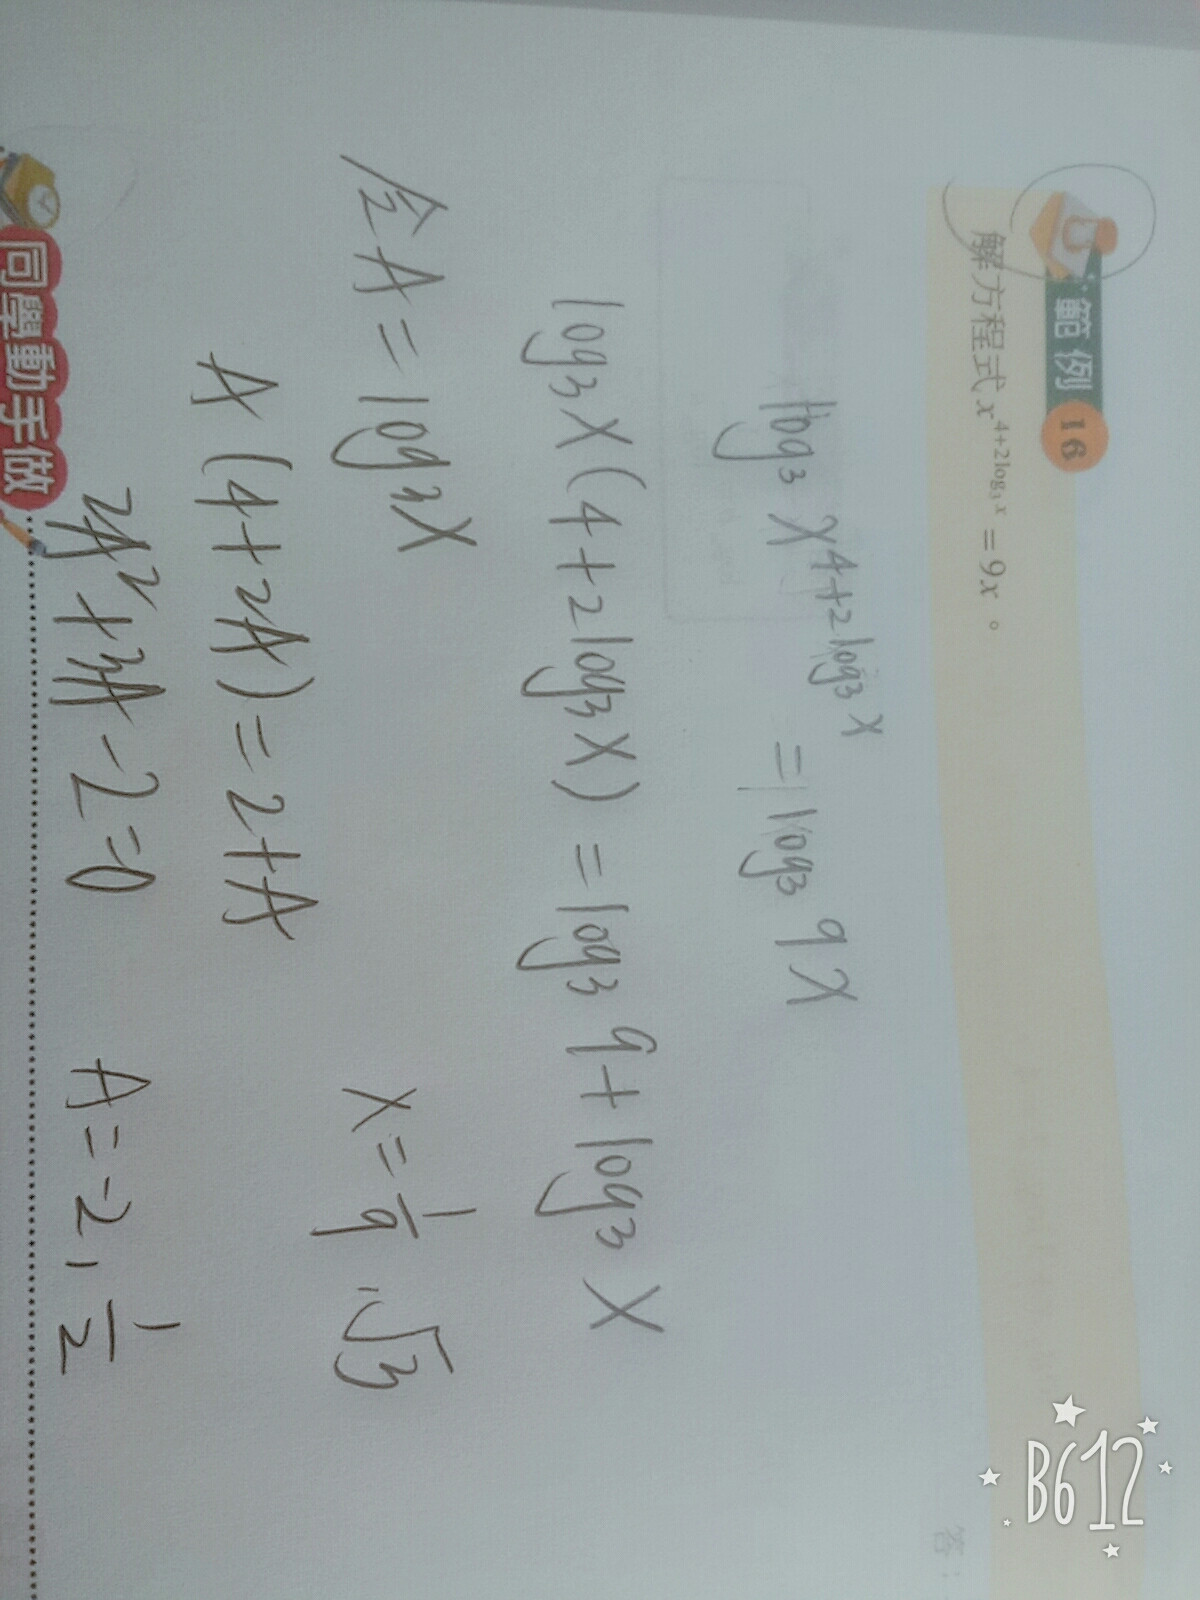 範例 16
解方程式 x^{4+2log₃x} = 9x。
log₃ x^{4+2log₃x} = log₃ 9x
log₃x(4+2log₃x) = log₃9 + log₃x
令A = log₃x
A(4+2A) = 2+A
x = 1/9, √3
2A²+3A-2=0
A = -2, 1/2
同學動手做
答：
B612